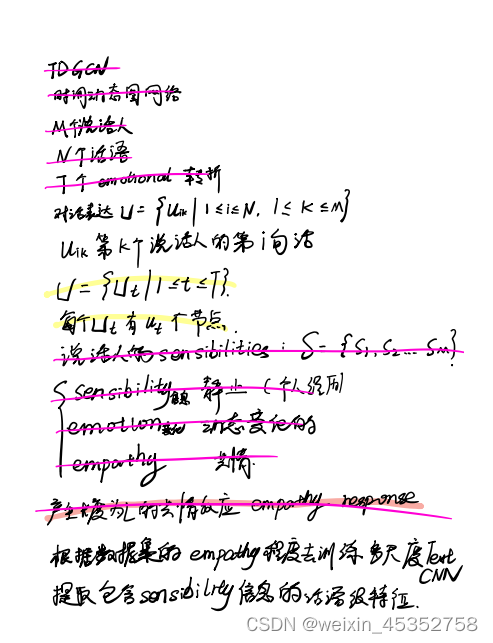 TDGCN
时间动态图网络
M个说话人
N个话语
T个 emotional 转折
对话表达 U = {Uik | 1≤i≤N, 1≤K≤M}
Uik 第K个说话人的第i句话
U = {Ut | 1≤t≤T}.
每个Ut 有 ut 个节点.
说话人的 sensibilities: S = {S1, S2 ... Sm}
{ sensibility 静止 (个人经历
emotion 动态变化的
empathy 共情.
产生长度为L的共情效应 empathy response
根据数据集的 empathy 程度去训练多尺度Text
CNN
提取包含sensibility信息的话语级特征.
CSDN @weixin_45352758